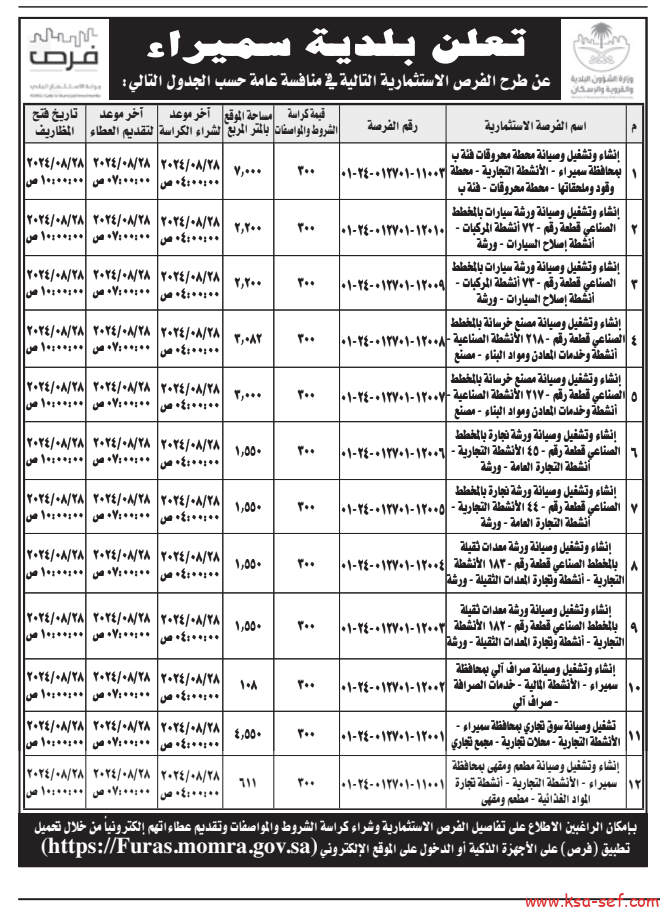 تعلن بلدية سميراء
عن طرح الفرص الاستثمارية التالية في منافسة عامة حسب الجدول التالي:
وزارة الشؤون البلدية
والقروية والإسكان
فرص
بوابة الاستثمار البلدي
م | اسم الفرصة الاستثمارية | رقم الفرصة | قيمة كراسة الشروط والمواصفات | مساحة الموقع بالمتر المربع | آخر موعد لشراء الكراسة | آخر موعد لتقديم العطاء | تاريخ فتح المظاريف
١ | إنشاء وتشغيل وصيانة محطة محروقات فئة ب بمحافظة سميراء - الأنشطة التجارية - محطة وقود وملحقاتها - محطة محروقات - فئة ب | ٠١-٢٤-٠١٢٧٠١-١١٠٠٣ | ٣٠٠ | ٧,٠٠٠ | ٢٠٢٤/٠٨/٢٨ ٠٤:٠٠:٠٠ ص | ٢٠٢٤/٠٨/٢٨ ٠٧:٠٠:٠٠ ص | ٢٠٢٤/٠٨/٢٨ ١٠:٠٠:٠٠ ص
٢ | إنشاء وتشغيل وصيانة ورشة سيارات بالمخطط الصناعي قطعة رقم - ٧٢ أنشطة المركبات - أنشطة إصلاح السيارات - ورشة | ٠١-٢٤-٠١٢٧٠١-١٢٠١٠ | ٣٠٠ | ٢,٢٠٠ | ٢٠٢٤/٠٨/٢٨ ٠٤:٠٠:٠٠ ص | ٢٠٢٤/٠٨/٢٨ ٠٧:٠٠:٠٠ ص | ٢٠٢٤/٠٨/٢٨ ١٠:٠٠:٠٠ ص
٣ | إنشاء وتشغيل وصيانة ورشة سيارات بالمخطط الصناعي قطعة رقم - ٧٣ أنشطة المركبات - أنشطة إصلاح السيارات - ورشة | ٠١-٢٤-٠١٢٧٠١-١٢٠٠٩ | ٣٠٠ | ٢,٢٠٠ | ٢٠٢٤/٠٨/٢٨ ٠٤:٠٠:٠٠ ص | ٢٠٢٤/٠٨/٢٨ ٠٧:٠٠:٠٠ ص | ٢٠٢٤/٠٨/٢٨ ١٠:٠٠:٠٠ ص
٤ | إنشاء وتشغيل وصيانة مصنع خرسانة بالمخطط الصناعي قطعة رقم - ٢١٨ الأنشطة الصناعية - أنشطة وخدمات المعادن ومواد البناء - مصنع | ٠١-٢٤-٠١٢٧٠١-١٢٠٠٨ | ٣٠٠ | ٣,٠٨٢ | ٢٠٢٤/٠٨/٢٨ ٠٤:٠٠:٠٠ ص | ٢٠٢٤/٠٨/٢٨ ٠٧:٠٠:٠٠ ص | ٢٠٢٤/٠٨/٢٨ ١٠:٠٠:٠٠ ص
٥ | إنشاء وتشغيل وصيانة مصنع خرسانة بالمخطط الصناعي قطعة رقم - ٢١٧ الأنشطة الصناعية - أنشطة وخدمات المعادن ومواد البناء - مصنع | ٠١-٢٤-٠١٢٧٠١-١٢٠٠٧ | ٣٠٠ | ٣,٠٠٠ | ٢٠٢٤/٠٨/٢٨ ٠٤:٠٠:٠٠ ص | ٢٠٢٤/٠٨/٢٨ ٠٧:٠٠:٠٠ ص | ٢٠٢٤/٠٨/٢٨ ١٠:٠٠:٠٠ ص
٦ | إنشاء وتشغيل وصيانة ورشة نجارة بالمخطط الصناعي قطعة رقم - ٤٥ الأنشطة التجارية - أنشطة التجارة العامة - ورشة | ٠١-٢٤-٠١٢٧٠١-١٢٠٠٦ | ٣٠٠ | ١,٥٥٠ | ٢٠٢٤/٠٨/٢٨ ٠٤:٠٠:٠٠ ص | ٢٠٢٤/٠٨/٢٨ ٠٧:٠٠:٠٠ ص | ٢٠٢٤/٠٨/٢٨ ١٠:٠٠:٠٠ ص
٧ | إنشاء وتشغيل وصيانة ورشة نجارة بالمخطط الصناعي قطعة رقم - ٤٤ الأنشطة التجارية - أنشطة التجارة العامة - ورشة | ٠١-٢٤-٠١٢٧٠١-١٢٠٠٥ | ٣٠٠ | ١,٥٥٠ | ٢٠٢٤/٠٨/٢٨ ٠٤:٠٠:٠٠ ص | ٢٠٢٤/٠٨/٢٨ ٠٧:٠٠:٠٠ ص | ٢٠٢٤/٠٨/٢٨ ١٠:٠٠:٠٠ ص
٨ | إنشاء وتشغيل وصيانة ورشة معدات ثقيلة بالمخطط الصناعي قطعة رقم - ١٨٣ الأنشطة التجارية - أنشطة وتجارة المعدات الثقيلة - ورشة | ٠١-٢٤-٠١٢٧٠١-١٢٠٠٤ | ٣٠٠ | ١,٥٥٠ | ٢٠٢٤/٠٨/٢٨ ٠٤:٠٠:٠٠ ص | ٢٠٢٤/٠٨/٢٨ ٠٧:٠٠:٠٠ ص | ٢٠٢٤/٠٨/٢٨ ١٠:٠٠:٠٠ ص
٩ | إنشاء وتشغيل وصيانة ورشة معدات ثقيلة بالمخطط الصناعي قطعة رقم - ١٨٢ الأنشطة التجارية - أنشطة وتجارة المعدات الثقيلة - ورشة | ٠١-٢٤-٠١٢٧٠١-١٢٠٠٣ | ٣٠٠ | ١,٥٥٠ | ٢٠٢٤/٠٨/٢٨ ٠٤:٠٠:٠٠ ص | ٢٠٢٤/٠٨/٢٨ ٠٧:٠٠:٠٠ ص | ٢٠٢٤/٠٨/٢٨ ١٠:٠٠:٠٠ ص
١٠ | إنشاء وتشغيل وصيانة صراف آلي بمحافظة سميراء - الأنشطة المالية - خدمات الصرافة - صراف آلي | ٠١-٢٤-٠١٢٧٠١-١٢٠٠٢ | ٣٠٠ | ١٠٨ | ٢٠٢٤/٠٨/٢٨ ٠٤:٠٠:٠٠ ص | ٢٠٢٤/٠٨/٢٨ ٠٧:٠٠:٠٠ ص | ٢٠٢٤/٠٨/٢٨ ١٠:٠٠:٠٠ ص
١١ | تشغيل وصيانة سوق تجاري بمحافظة سميراء - الأنشطة التجارية - محلات تجارية - مجمع تجاري | ٠١-٢٤-٠١٢٧٠١-١٢٠٠١ | ٣٠٠ | ٤,٥٥٠ | ٢٠٢٤/٠٨/٢٨ ٠٤:٠٠:٠٠ ص | ٢٠٢٤/٠٨/٢٨ ٠٧:٠٠:٠٠ ص | ٢٠٢٤/٠٨/٢٨ ١٠:٠٠:٠٠ ص
١٢ | إنشاء وتشغيل وصيانة مطعم ومقهى بمحافظة سميراء - الأنشطة التجارية - أنشطة تجارة المواد الغذائية - مطعم ومقهى | ٠١-٢٤-٠١٢٧٠١-١١٠٠١ | ٣٠٠ | ٦١١ | ٢٠٢٤/٠٨/٢٨ ٠٤:٠٠:٠٠ ص | ٢٠٢٤/٠٨/٢٨ ٠٧:٠٠:٠٠ ص | ٢٠٢٤/٠٨/٢٨ ١٠:٠٠:٠٠ ص
بإمكان الراغبين الاطلاع على تفاصيل الفرص الاستثمارية وشراء كراسة الشروط والمواصفات وتقديم عطاءاتهم إلكترونياً من خلال تحميل
تطبيق (فرص) على الأجهزة الذكية أو الدخول على الموقع الإلكتروني (https://Furas.momra.gov.sa)
www.ksa-sef.com